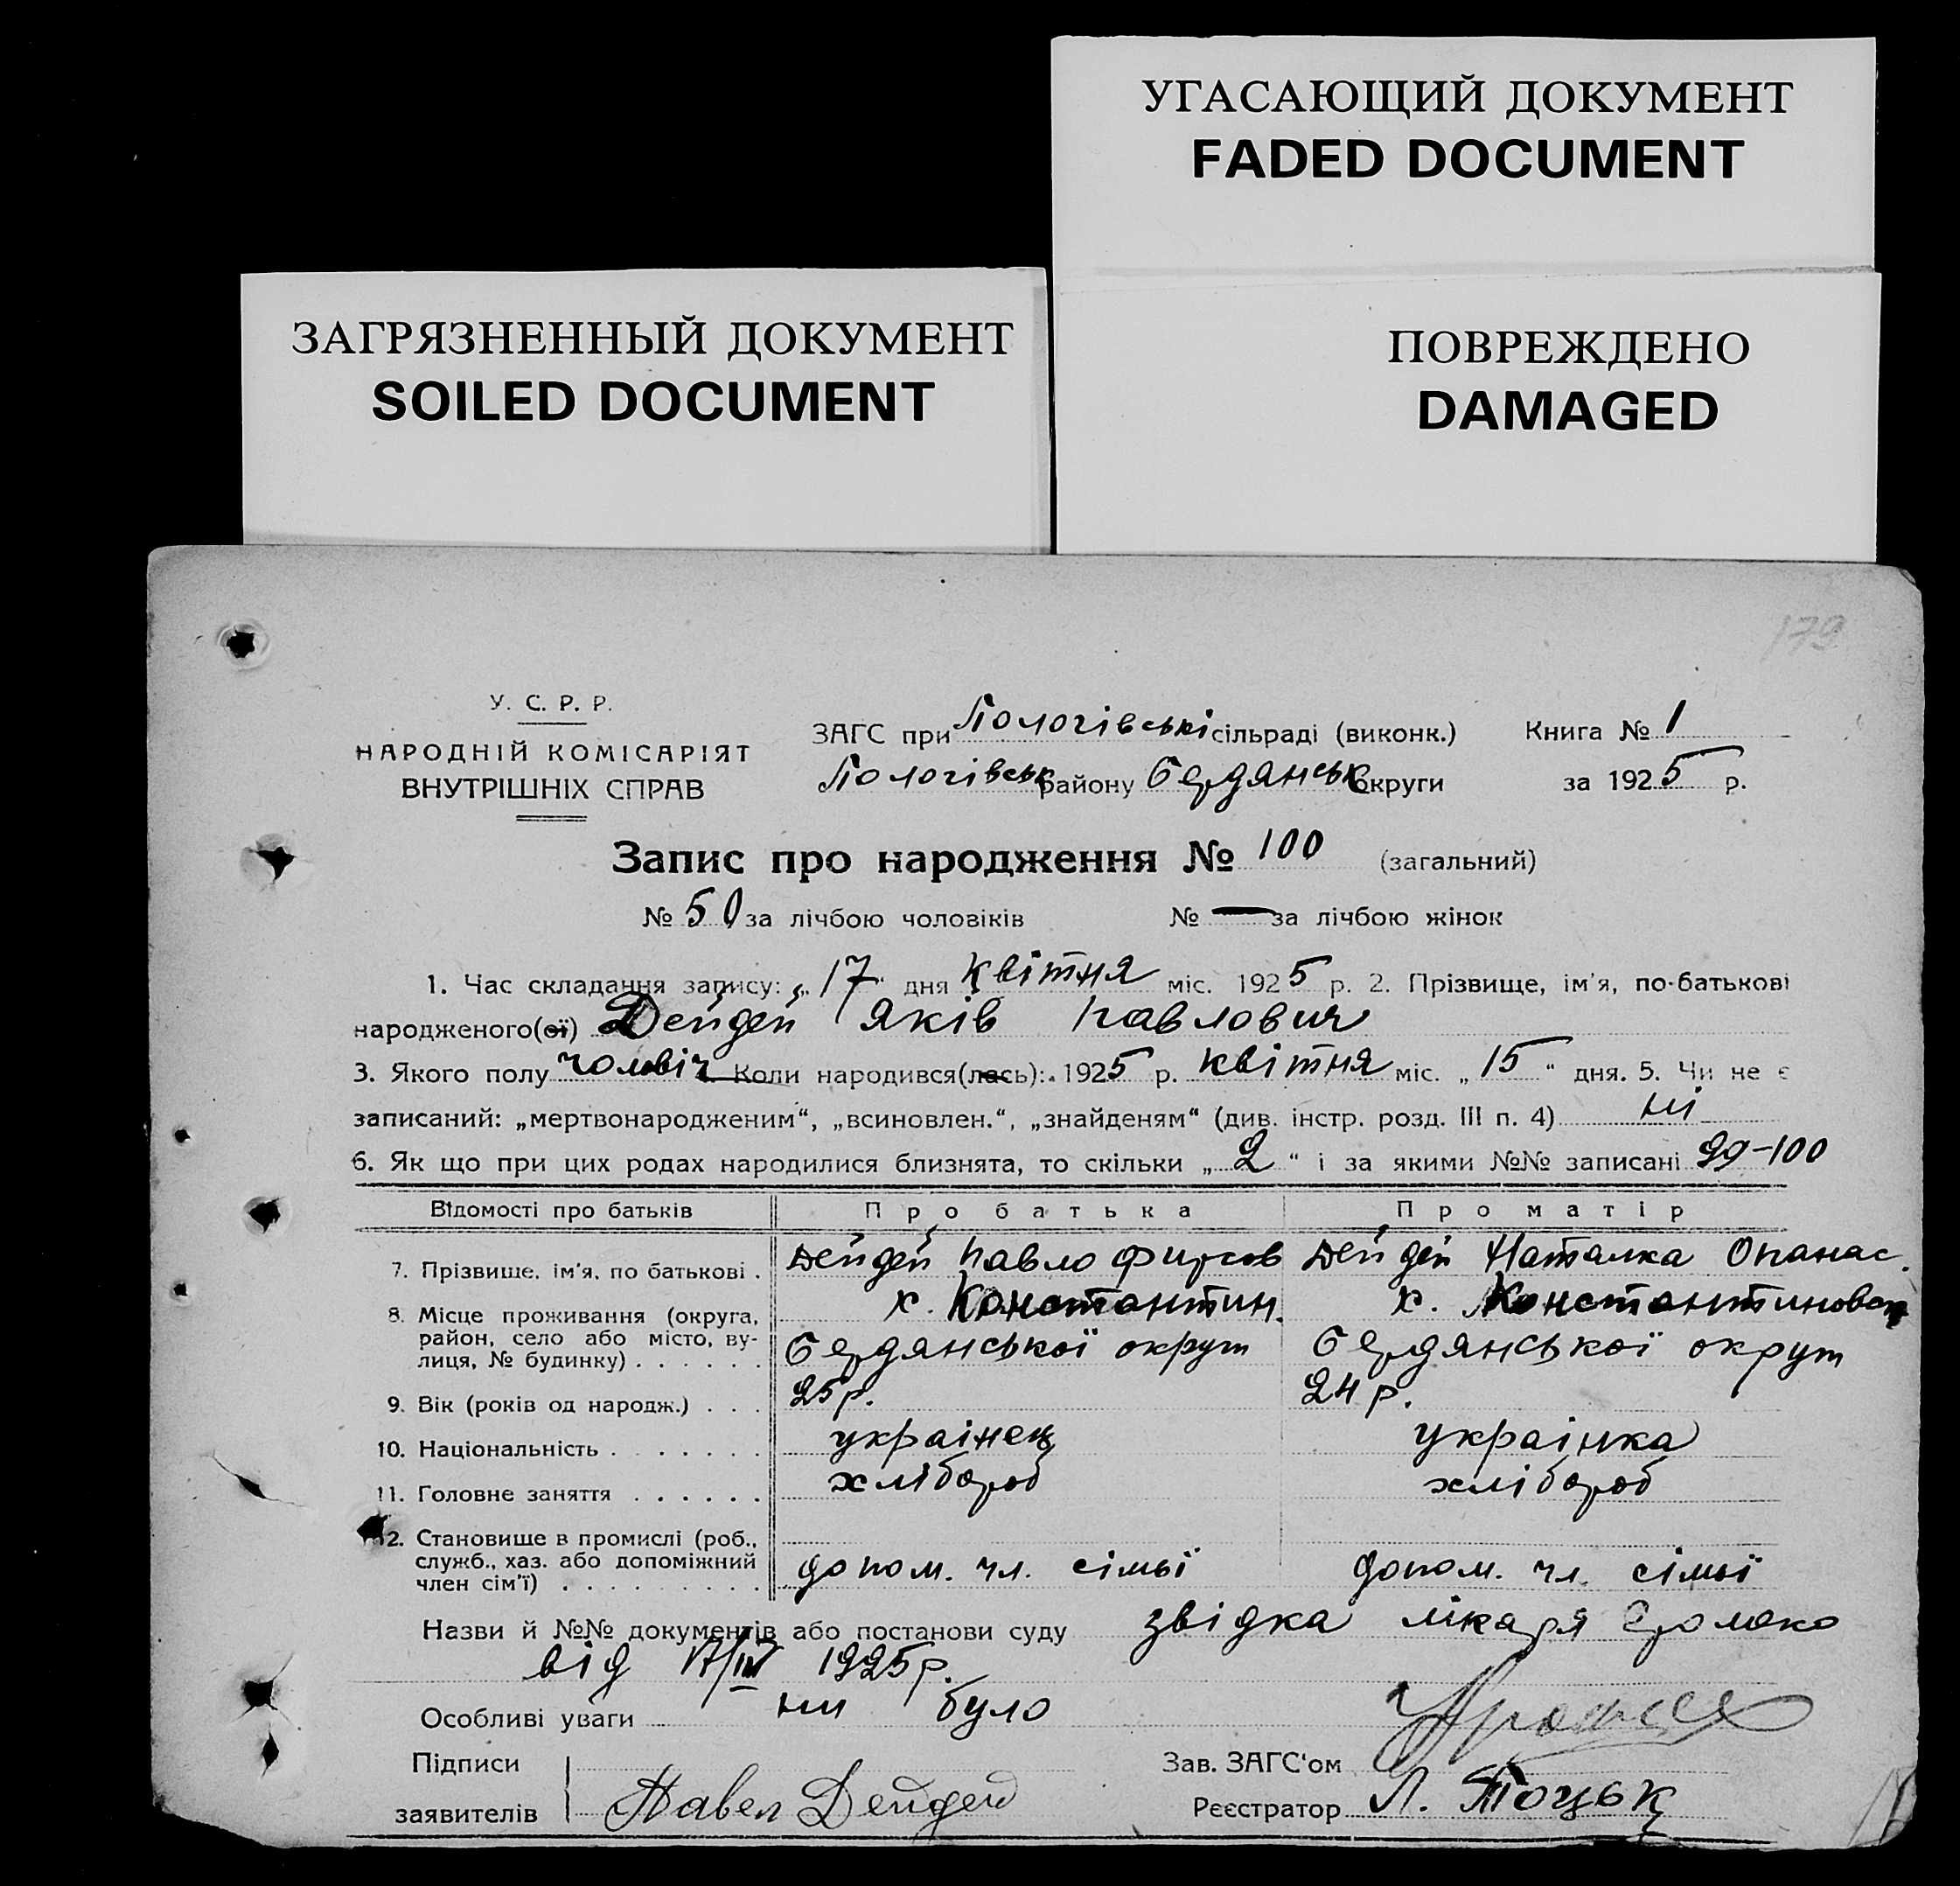 УГАСАЮЩИЙ ДОКУМЕНТ
FADED DOCUMENT
ЗАГРЯЗНЕННЫЙ ДОКУМЕНТ
SOILED DOCUMENT
ПОВРЕЖДЕНО
DAMAGED
179
У. С. Р. Р.
НАРОДНІЙ КОМІСАРІЯТ
ВНУТРІШНІХ СПРАВ
ЗАГС при Пологівські сільраді (виконк.) Книга № 1
Пологівськ району Бердянськ округи за 1925 р.
Запис про народження № 100 (загальний)
№ 50 за лічбою чоловіків № — за лічбою жінок
1. Час складання запису: „17" дня квітня міс. 1925 р. 2. Прізвище, ім'я, по-батькові
народженого(ої) Дейдей Яків Павлович
3. Якого полу чоловіч. Коли народився(лась): 1925 р. квітня міс. „15" дня. 5. Чи не є
записаний: „мертвонародженим", „всиновлен.", „знайденям" (див. інстр. розд. III п. 4) ні
6. Як що при цих родах народилися близнята, то скільки „2" і за якими №№ записані 99-100
Відомості про батьків Про батька Про матір
7. Прізвище, ім'я, по батькові . Дейдей Павло Фирсов Дейдей Наталка Опанас.
8. Місце проживання (округа, район, село або місто, вулиця, № будинку) . . . . . . х. Константин. х. Константиновск
Бердянської округи Бердянської округи
9. Вік (років од народж.) . . . 25 р. 24 р.
10. Національність . . . . . . . українец українка
11. Головне заняття . . . . . . хлібороб хлібороб
12. Становище в промислі (роб., служб., хаз. або допоміжний член сім'ї) . . . . . . . . . допом. чл. сімьї допом. чл. сімьї
Назви й №№ документів або постанови суду звідка лікаря
від 17/IV 1925 р.
Особливі уваги ни було
Підписи Зав. ЗАГС'ом
заявителів Павел Дейдей Реєстратор Л.